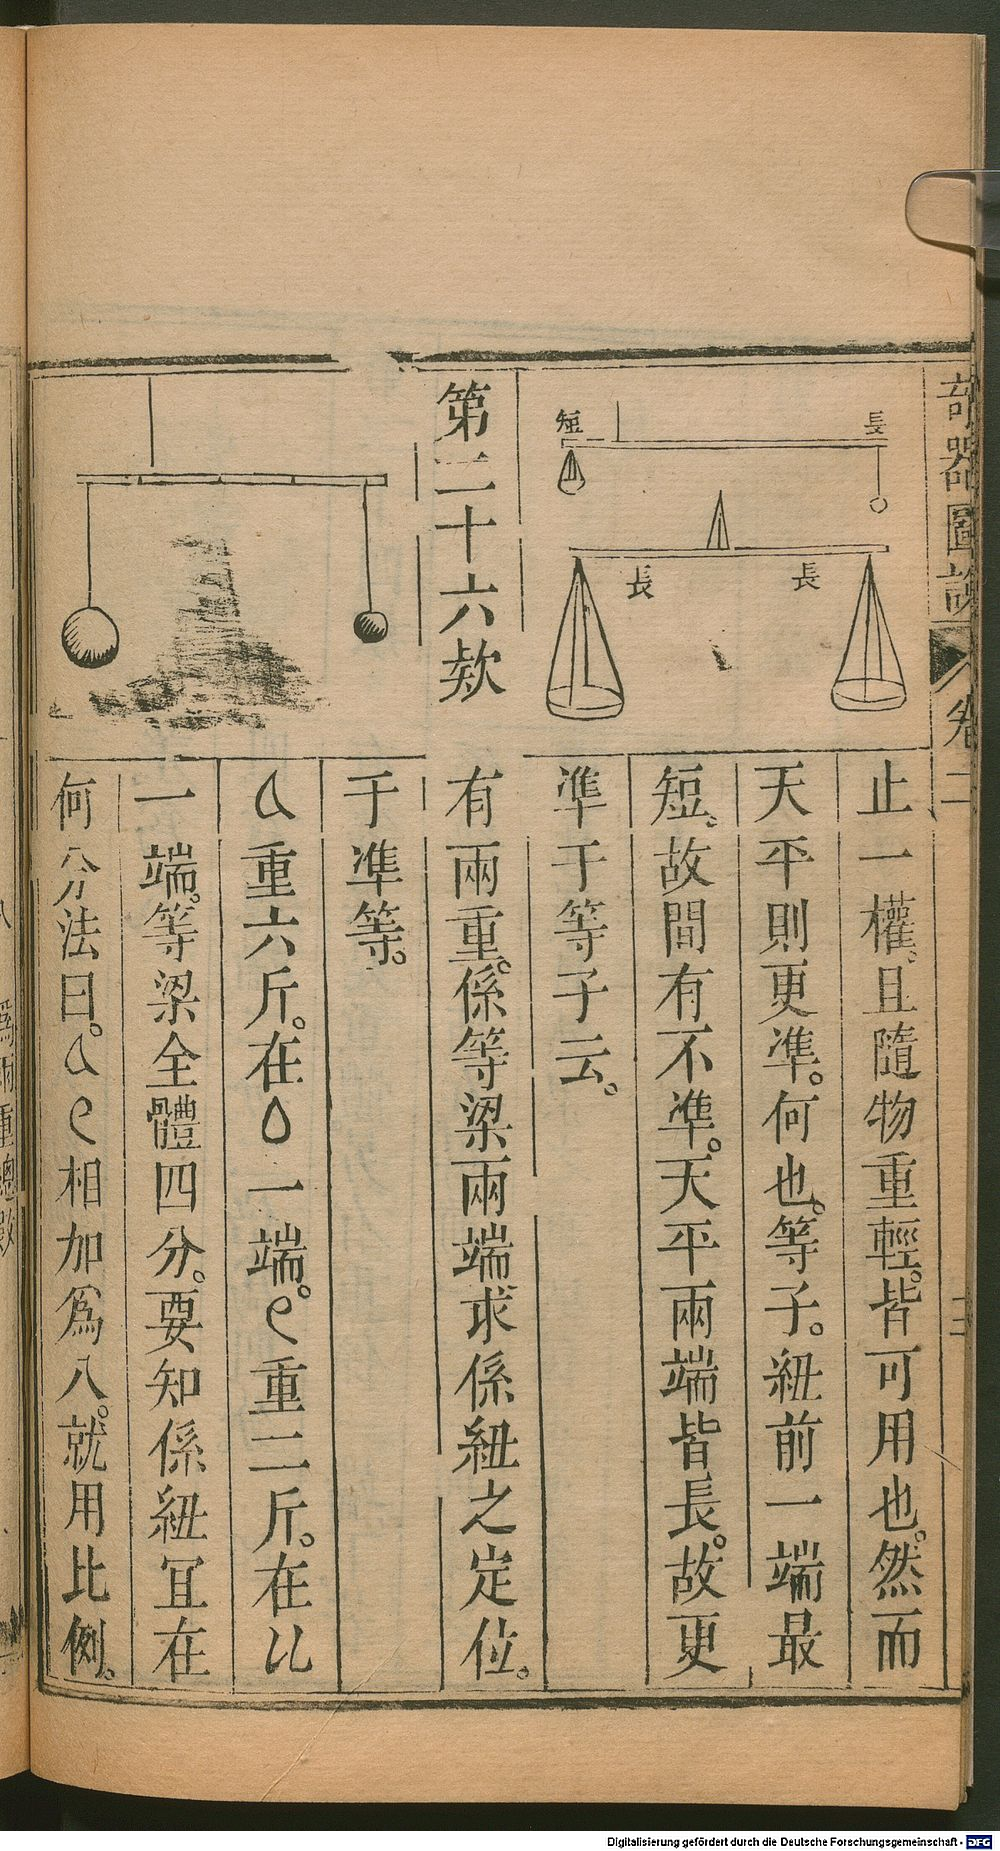 奇器圖說 卷二
長
短
長
長
止一權。且隨物重輕。皆可用也。然而
天平則更準。何也。等子。紐前一端最
短。故間有不準。天平兩端皆長。故更
準于等子云。
第二十六款
有兩重。係等梁兩端求係紐之定位。
于準等。
重六斤。在 一端。 重二斤。在
一端。等梁全體四分。要知係紐宜在
何分法曰。 相加爲八。就用比例。
Digitalisierung gefördert durch die Deutsche Forschungsgemeinschaft - DFG